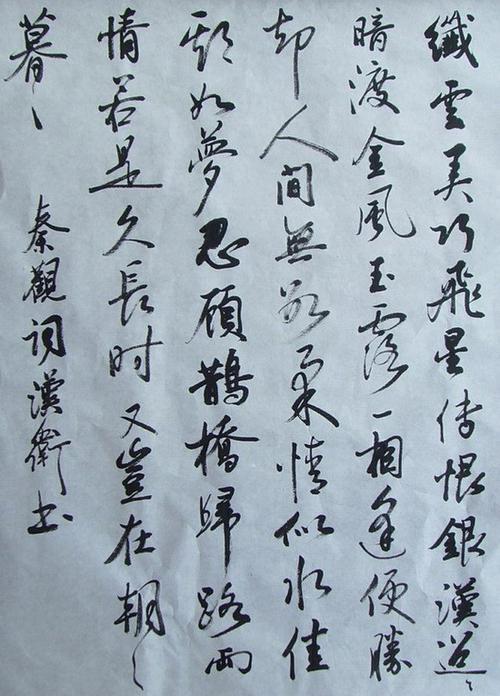 纖雲弄巧飛星传恨銀漢迢〻
暗渡金風玉露一相逢便勝
却人間無數柔情似水佳
期如夢忍顧鵲橋歸路兩
情若是久長时又豈在朝〻
暮〻
秦觀詞漢衛书